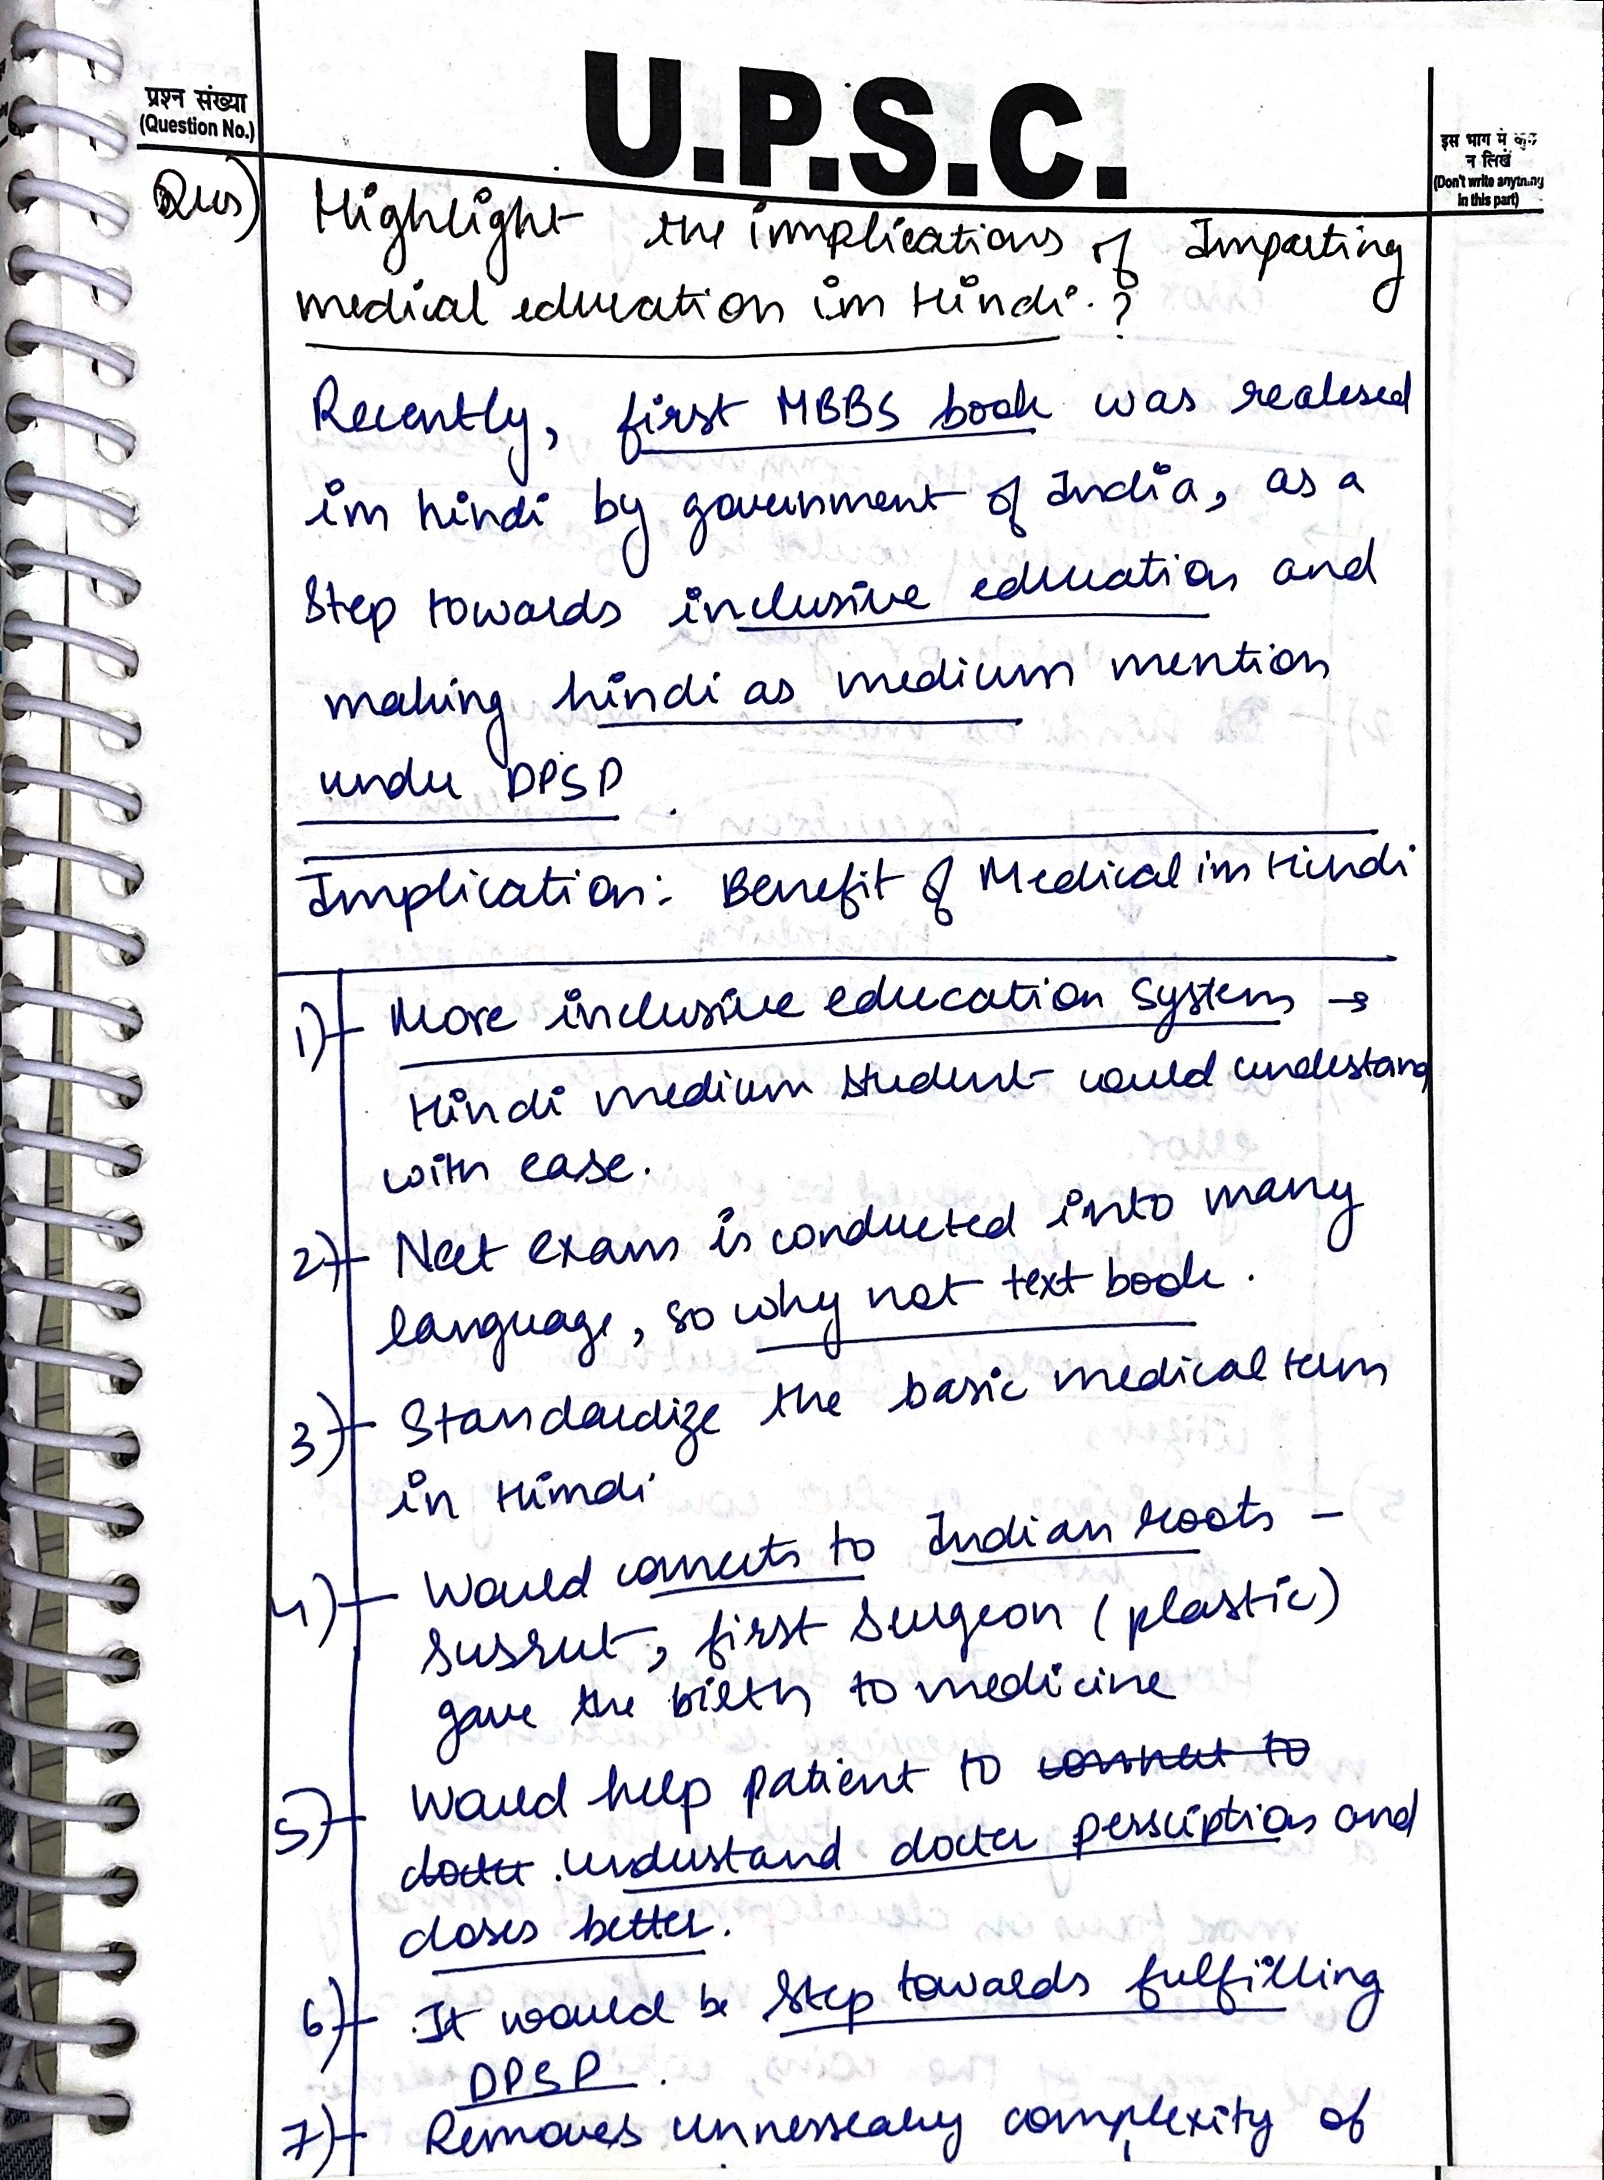 U.P.S.C.
प्रश्न संख्या
(Question No.)
इस भाग में कुछ
न लिखें
(Don't write anything
in this part)
Ques) Highlight the implications of Imparting
medical education in Hindi.?
Recently, first MBBS book was realesed
in hindi by government of India, as a
Step towards inclusive education and
making hindi as medium mention
under DPSP.
Implication: Benefit of Medical in Hindi
1) More inclusive education System →
Hindi medium student would understand
with ease.
2) Neet exam is conducted into many
language, so why not text book.
3) Standardize the basic medical term
in Hindi
4) Would connects to Indian roots –
Susrut, first surgeon (plastic)
gave the birth to medicine
5) Would help patient to connect to
doctor. understand doctor perscription and
doses better.
6) It would be step towards fulfilling
DPSP.
7) Removes unnessesary complexity of